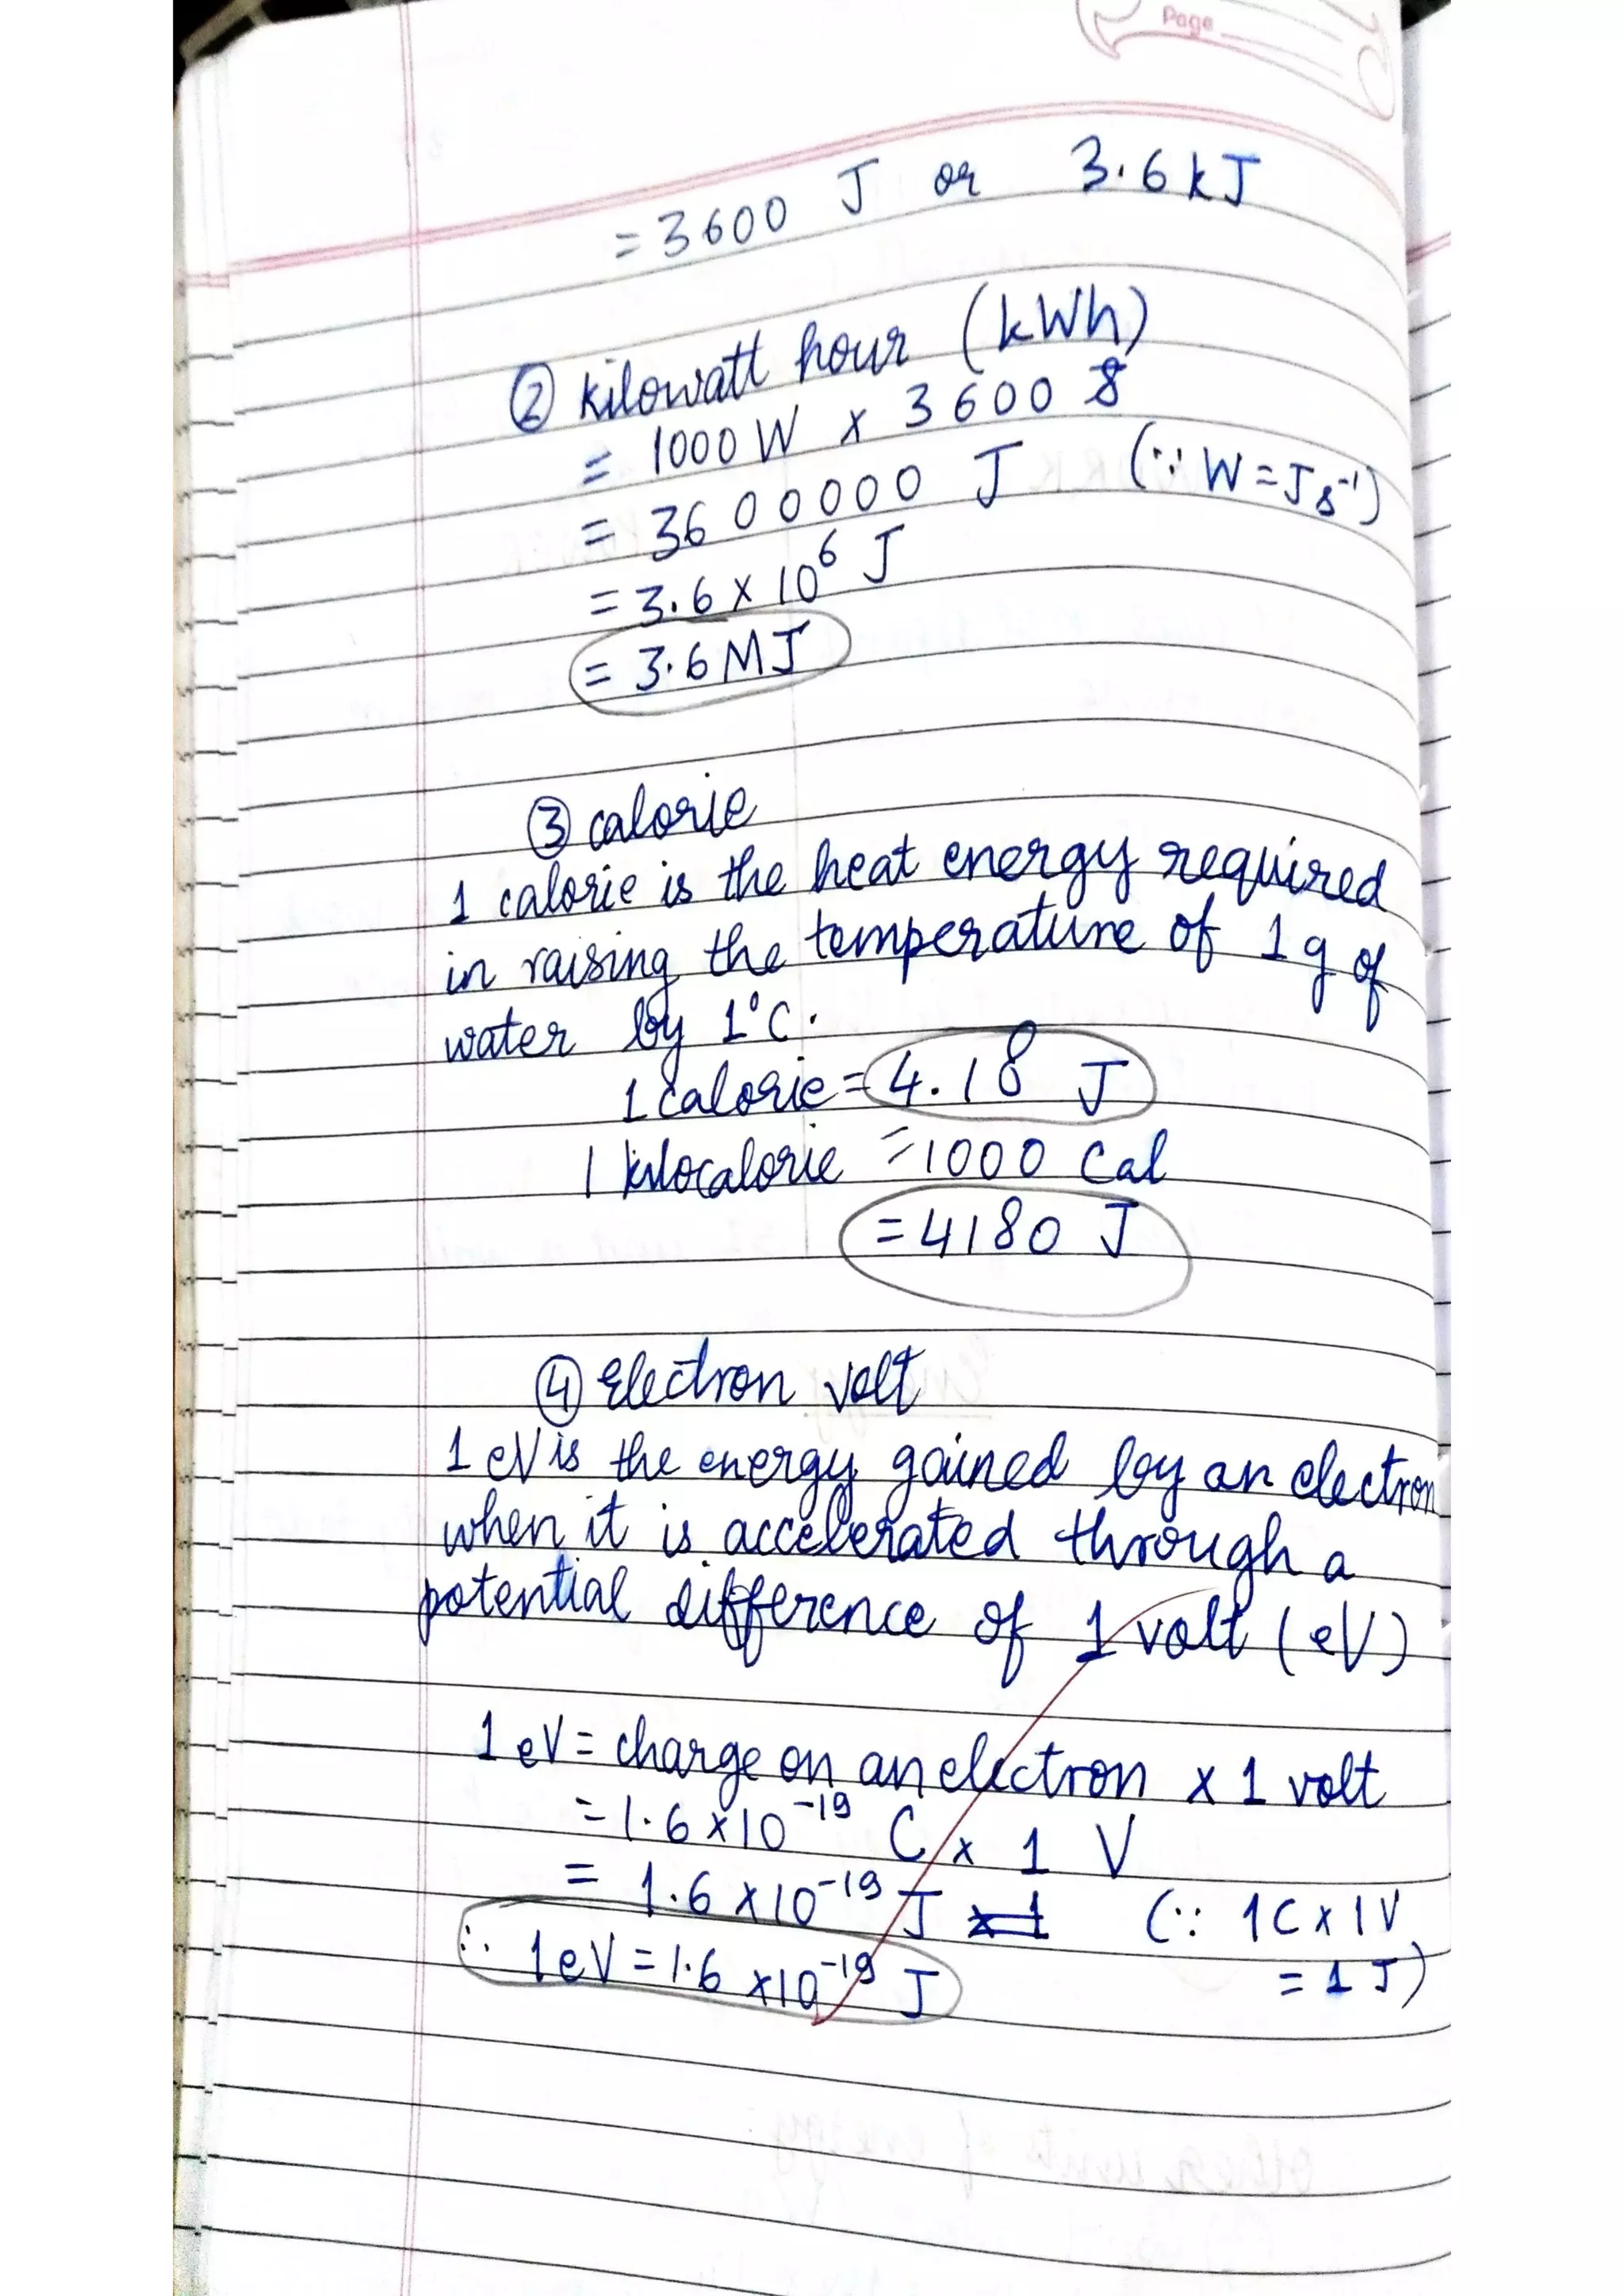 Page
= 3600 J or 3.6 kJ
② kilowatt hour (kWh)
= 1000 W x 3600 s
= 3600000 J (∵ W = J s⁻¹)
= 3.6 x 10⁶ J
= 3.6 MJ
③ calorie
1 calorie is the heat energy required
in raising the temperature of 1 g of
water by 1°C.
1 calorie = 4.18 J
1 kilocalorie = 1000 Cal
= 4180 J
④ Electron volt
1 eV is the energy gained by an electron
when it is accelerated through a
potential difference of 1 volt (eV)
1 eV = charge on an electron x 1 volt
= 1.6 x 10⁻¹⁹ C x 1 V
= 1.6 x 10⁻¹⁹ J x 1 (∵ 1 C x 1 V
∴ 1 eV = 1.6 x 10⁻¹⁹ J = 1 J)